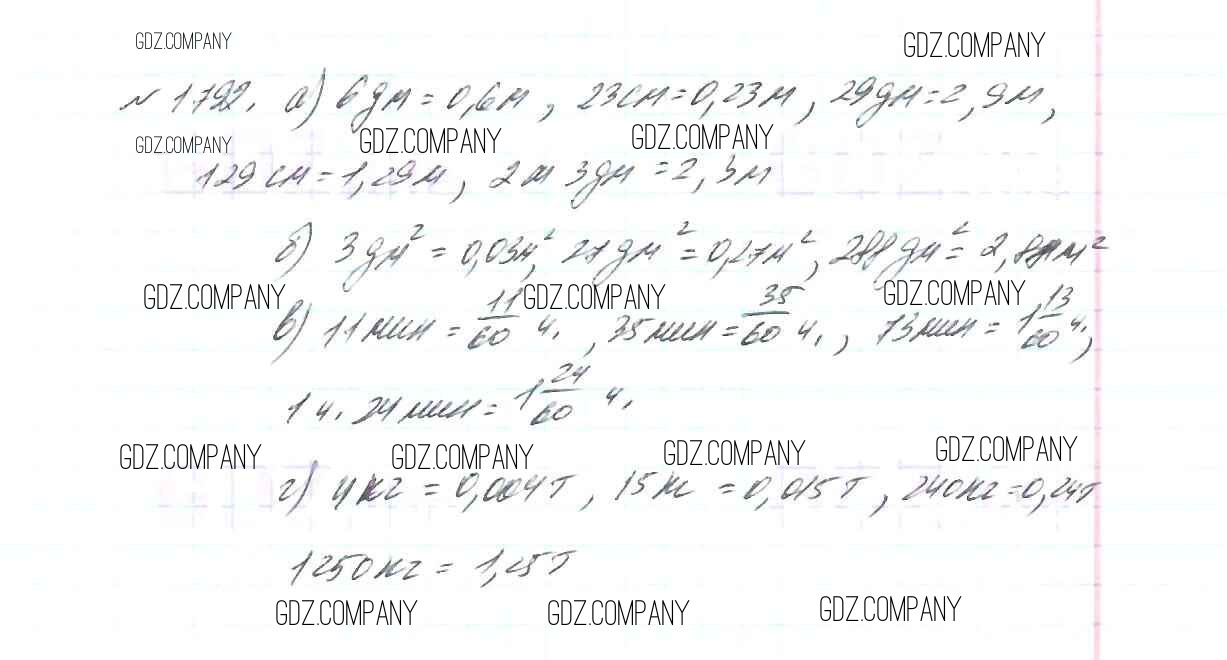 GDZ.COMPANY GDZ.COMPANY
№ 1792. а) 6 дм = 0,6 м, 23 см = 0,23 м, 29 дм = 2,9 м,
GDZ.COMPANY GDZ.COMPANY GDZ.COMPANY
129 см = 1,29 м, 2 м 3 дм = 2,3 м
б) 3 дм² = 0,03 м², 27 дм² = 0,27 м², 288 дм² = 2,88 м²
GDZ.COMPANY GDZ.COMPANY GDZ.COMPANY
в) 11 мин = 11/60 ч., 35 мин = 35/60 ч., 73 мин = 1 13/60 ч.,
1 ч. 24 мин = 1 24/60 ч.
GDZ.COMPANY GDZ.COMPANY GDZ.COMPANY GDZ.COMPANY
г) 4 кг = 0,004 т, 15 кг = 0,015 т, 240 кг = 0,24 т
1250 кг = 1,25 т
GDZ.COMPANY GDZ.COMPANY GDZ.COMPANY